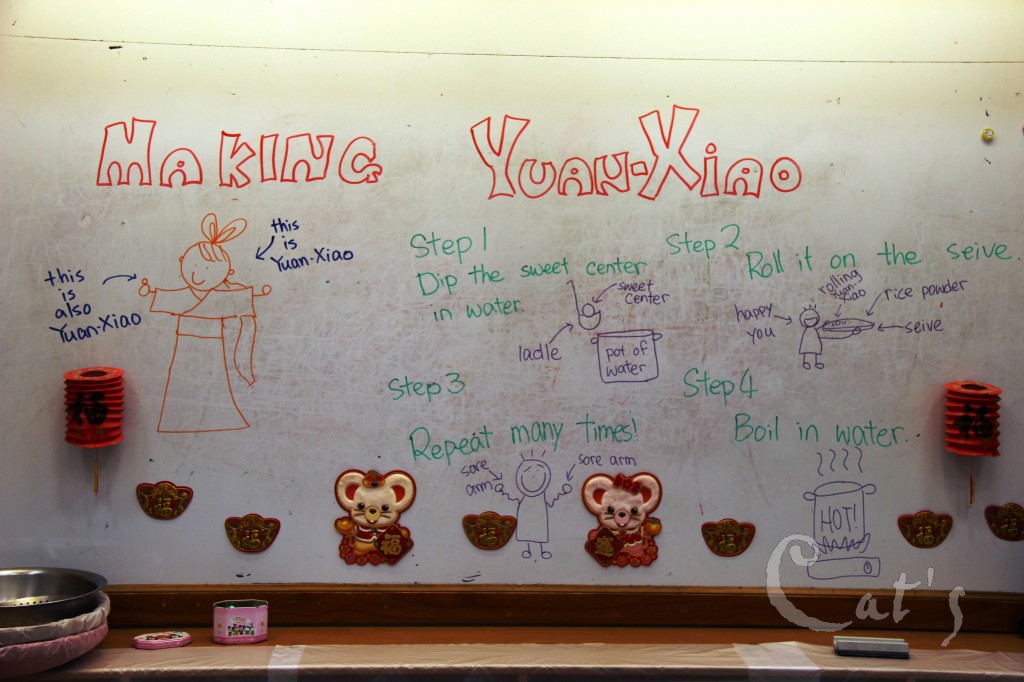 MAKING YUAN-XIAO
this
is
Yuan-Xiao
this
is
also
Yuan-Xiao
Step 1
Dip the sweet center
in water
sweet
center
ladle
pot of
water
Step 2
Roll it on the seive.
rolling
Yuan-
Xiao
rice powder
happy
you
seive
Step 3
Repeat many times!
sore
arm
sore arm
Step 4
Boil in water.
HOT!
福
福
福
Cat's